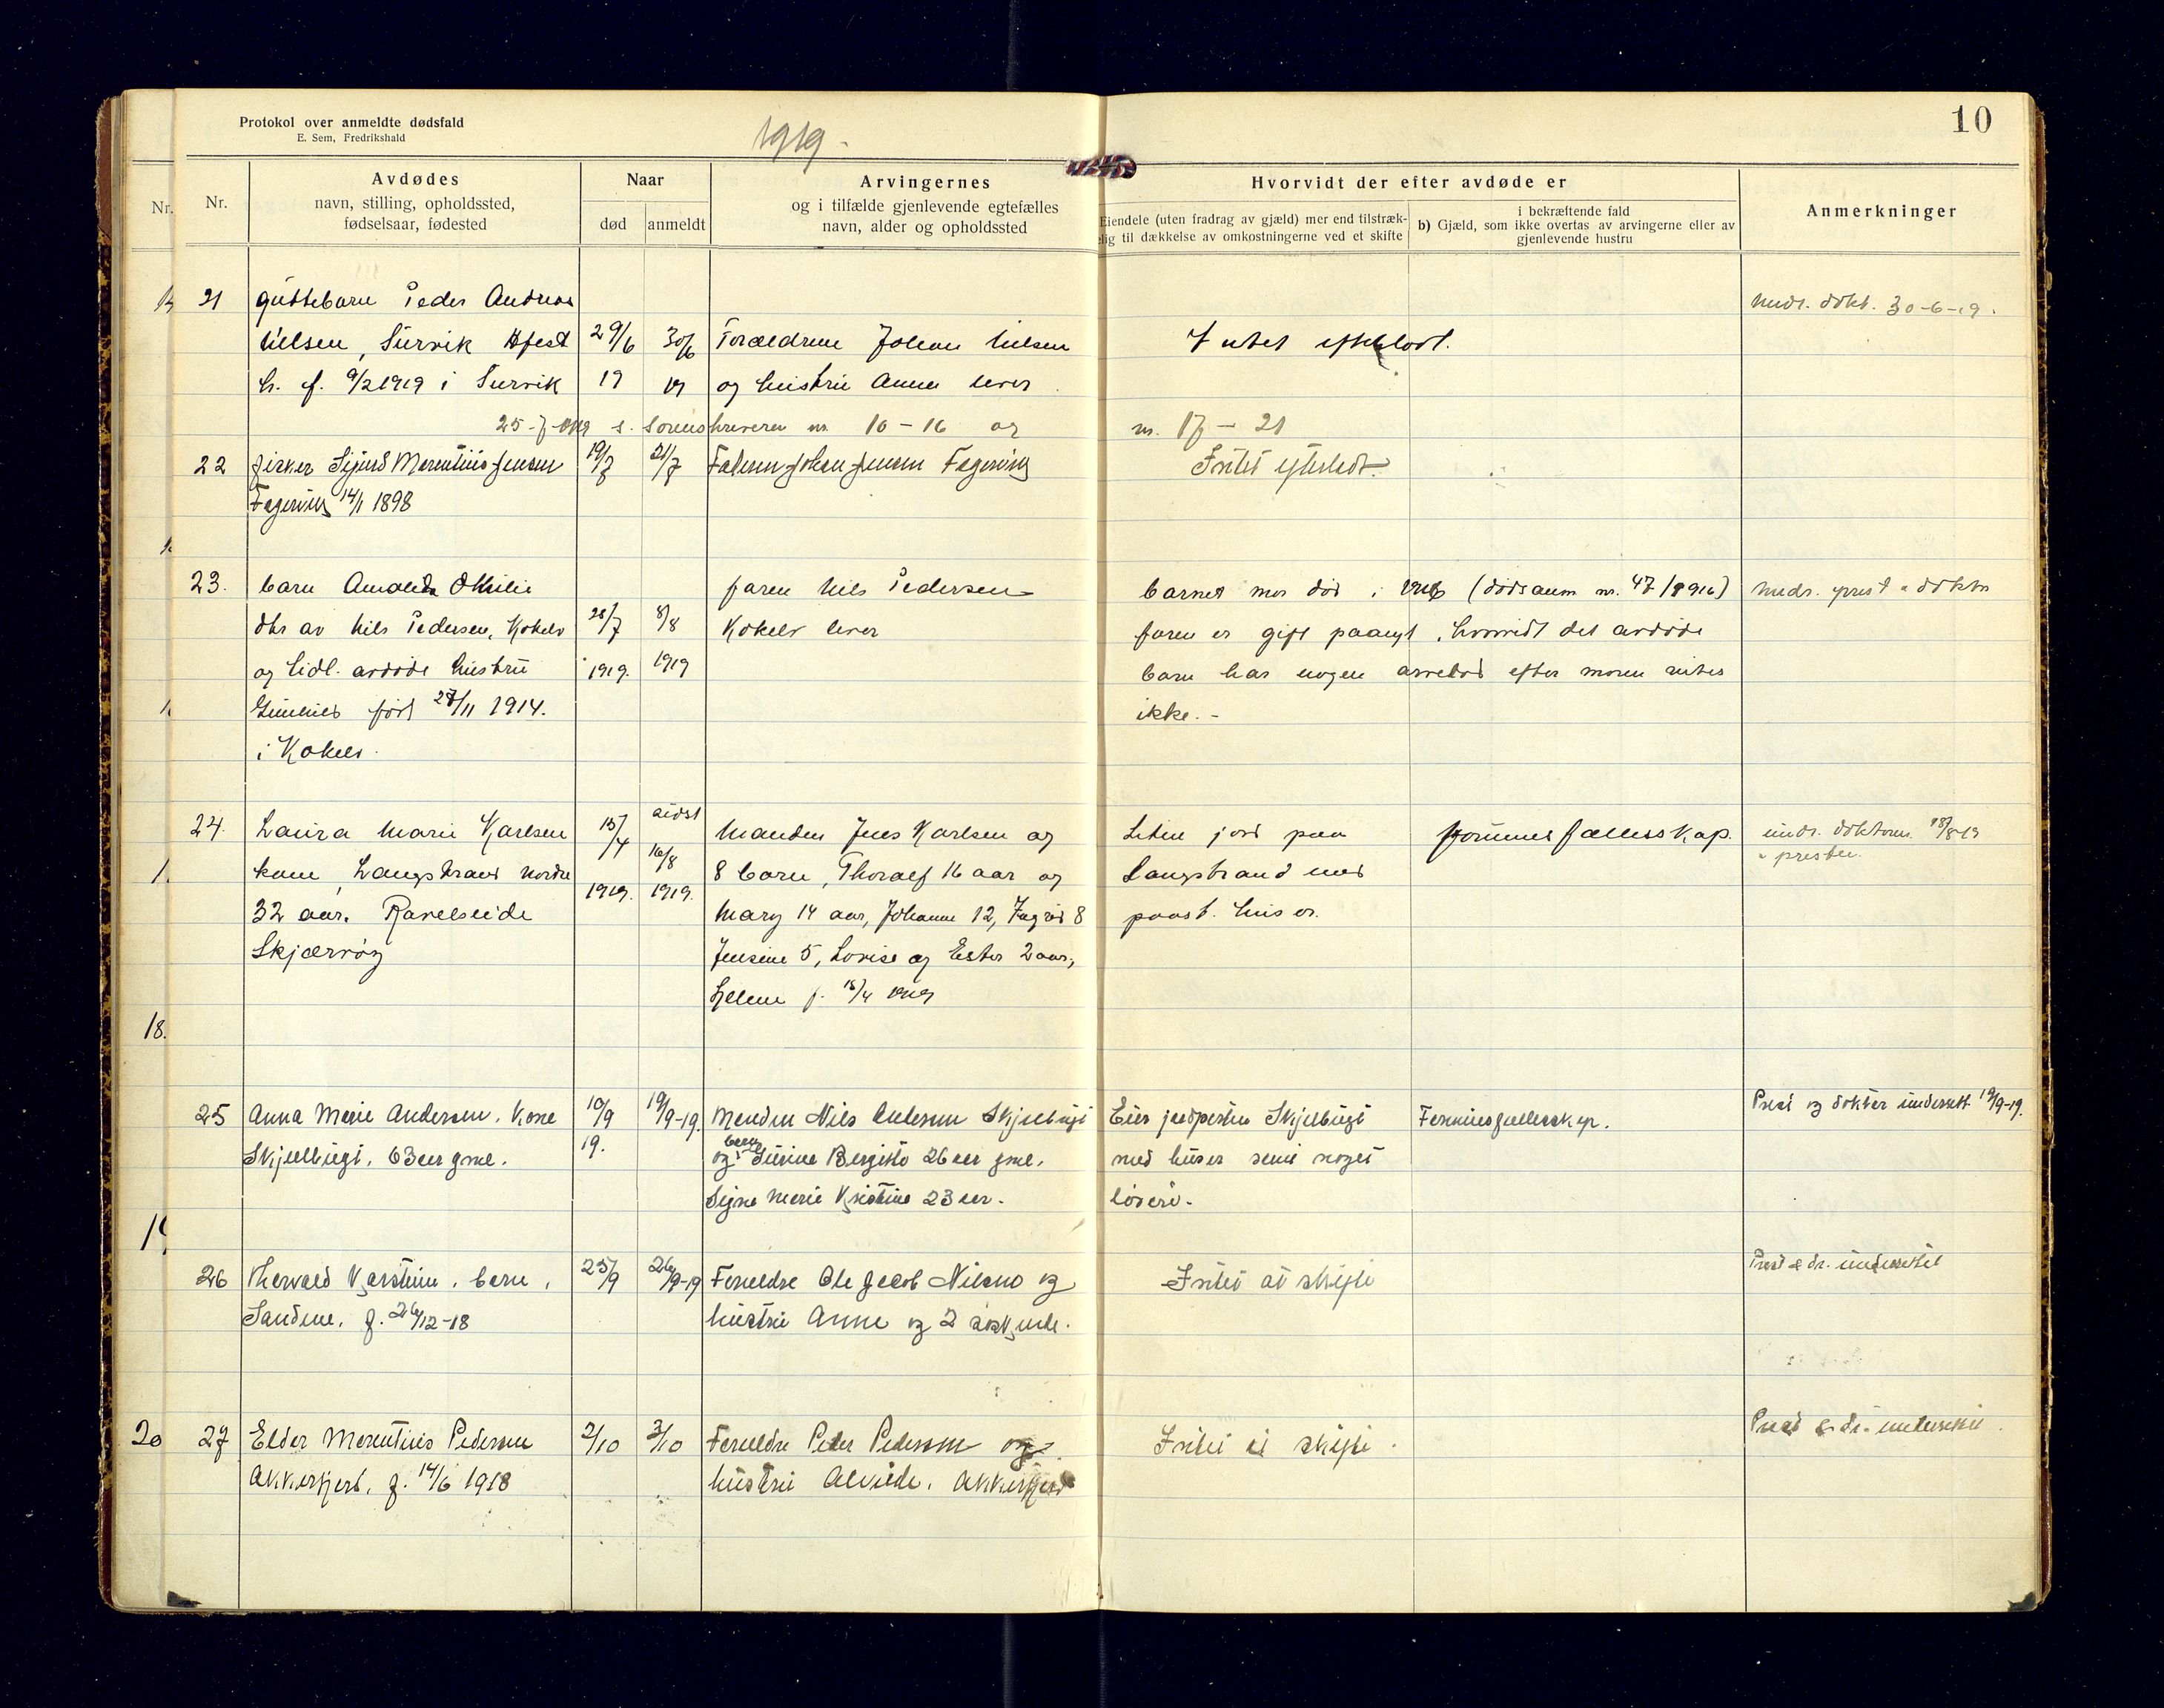 10
Protokol over anmeldte dødsfald
E. Sem, Fredrikshald
1919.
Nr.
Nr.
Avdødes
navn, stilling, opholdssted,
fødselsaar, fødested
Naar
død
anmeldt
Arvingernes
og i tilfælde gjenlevende egtefælles
navn, alder og opholdssted
Hvorvidt der efter avdøde er
Eiendele (uten fradrag av gjæld) mer end tilstræk-
lig til dækkelse av omkostningerne ved et skifte
i bekræftende fald
b) Gjæld, som ikke overtas av arvingerne eller av
gjenlevende hustru
Anmerkninger
21 guttebarn Peder Andreas
undr. dokt. 30-6-19.
Nilsen, Survik Hfest 29/6 30/6 Forældrene Johan Nilsen Intet efterladt.
h. f. 9/2 1919 i Survik 19 19 og hustru Anna lever
25-7-1919 s. Sorenskriveren nr. 10 - 16 og nr. 17 - 21
22 fisker Sigurd Marentius Jensen 19/7 21/7 Faderen Johan Jensen Fægervik Intet efterladt.
Fægervik 14/1 1898
23. barn Amalida Othilie faren Nils Pedersen barnets mor død i 1916 (dødsanm nr. 47/1916) undr. prest & doktor
dtr av Nils Pedersen, Kokelv 28/7 8/8 Kokelv lever faren er gift paanyt, hvorvidt det avdøde
og tidl. avdøde hustru 1919. 1919 barn har nogen arvelod efter moren vites
Gunhild født 27/11 1914. ikke. -
i Kokelv.
24. Laura Marie Karlsen 15/4 aidst 16/8 Manden Jens Karlsen og Liten jord paa formuesfællesskap. undr. doktoren 18/8-19
" presten.
kone, Langstrand nordre 1919. 1919. 8 barn, Thoralf 16 aar og Langstrand med
32 aar. Ravelseide Mary 14 aar, Johanne 12, Ingrid 8 paast. huser.
Skjærvøy Jensine 5, Lovise og Ester 2 aar,
Helene f. 15/4 1919
18.
25 Anna Marie Andersen. Kone 10/9 19/9-19. Manden Nils Andersen Skjulbugt Eier jordparten Skjulbugt Formuesfællesskap. Prest og doktor underrett 19/9-19.
Skjulbugt. 63 aar gml. 19. og barn Surine Bergitto 26 aar gml. med huser samt noget
Signe Marie Kristine 23 aar. løsøre.
26 Thorvald Karstein. barn, 25/9 26/9-19 Foreldre Ole Jacob Nilsen og Intet at skifte Prest & dr. underrettet
Sandene. f. 26/12-18 hustru Anna og 2 søskende.
20 27 Eldor Marentius Pedersen 2/10 3/10 Foreldre Peder Pedersen og Intet at skifte. Prest & dr. underrettet.
Akkarfjord, f. 14/6 1918 hustru Alvilde. Akkarfjord